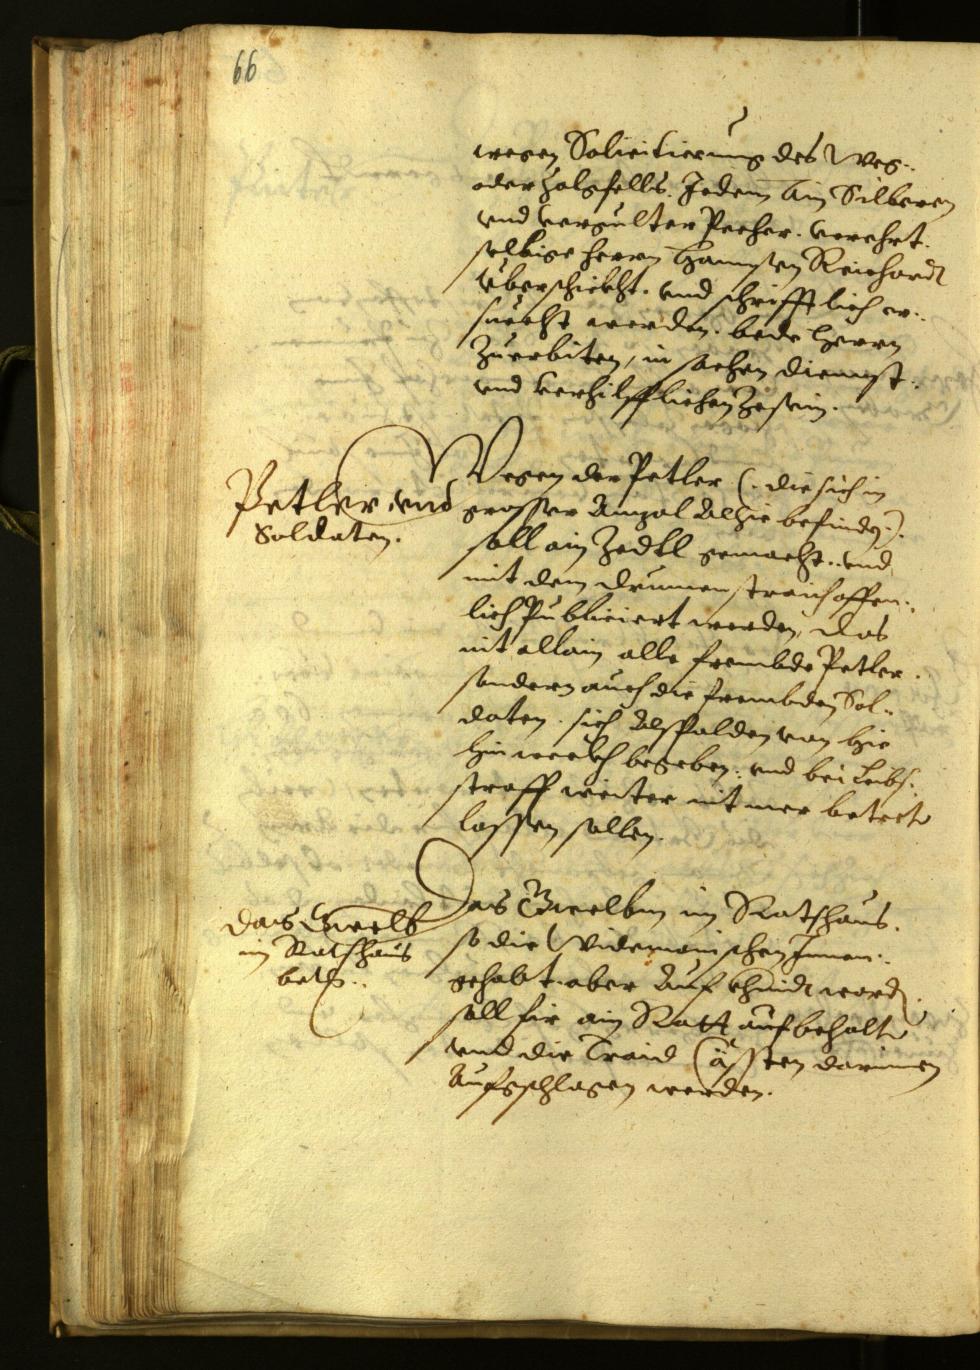 66
wegen Solicitierung des Weg-
oder Zolgfells. Jedem ain Silberen
und vergulter Pecher. verehrt.
selbige Herrn Hannsen Reichardt
uberschickht. und schrifftlich er-
suecht werden. bede Herrn
Zuerbiten, in sachen dienst-
und verhilfflichen Zesein.
Petler und
Soldaten.
Wegen der Petler (: die sich in
grosser Anzal alhie befinden :)
soll ain Zedtl gemacht. und
mit dem Drumenstraich offen-
lich Publiciert werden, das
nit allain alle frembde Petler.
sondern auch die frembden Sol-
daten. sich alspalden von hie
hinweckh begeben. und bei Leibs-
straff weiter nit mer betreten
lassen sollen.
Das Gwelb
im Rathhaus
betr.
Das Gwelben im Rathhaus.
so die Widemanischen Innen-
gehabt. aber aufkhindt worden.
soll fir ain Ratt aufbehalten
und die Traid Cässten darinnen
Aufgschlagen werden.